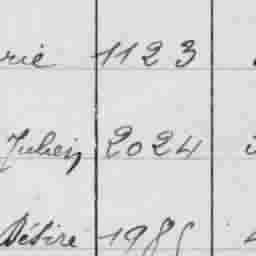 rie 1123
Julien 2024
Désiré 198